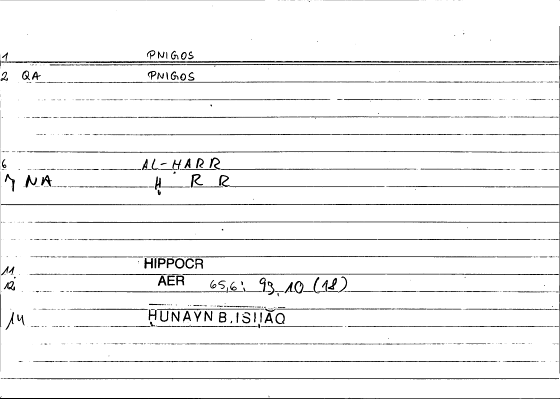 1 PNIGOS
2 QA PNIGOS
6 AL-ḤARR
7 NA Ḥ R R
11 HIPPOCR
12 AER 65,6: 93,10 (18)
14 ḤUNAYN B. ISḤĀQ